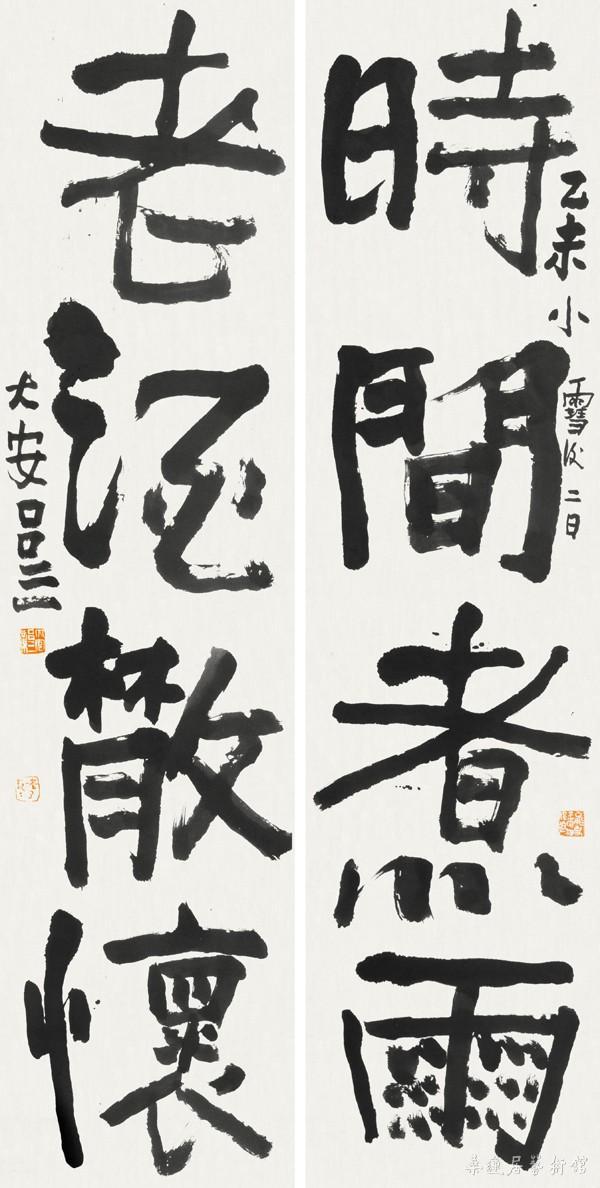 時間煮雨
乙未小雪後二日
老酒散懷
大安呂三
桑蓮居藝術館